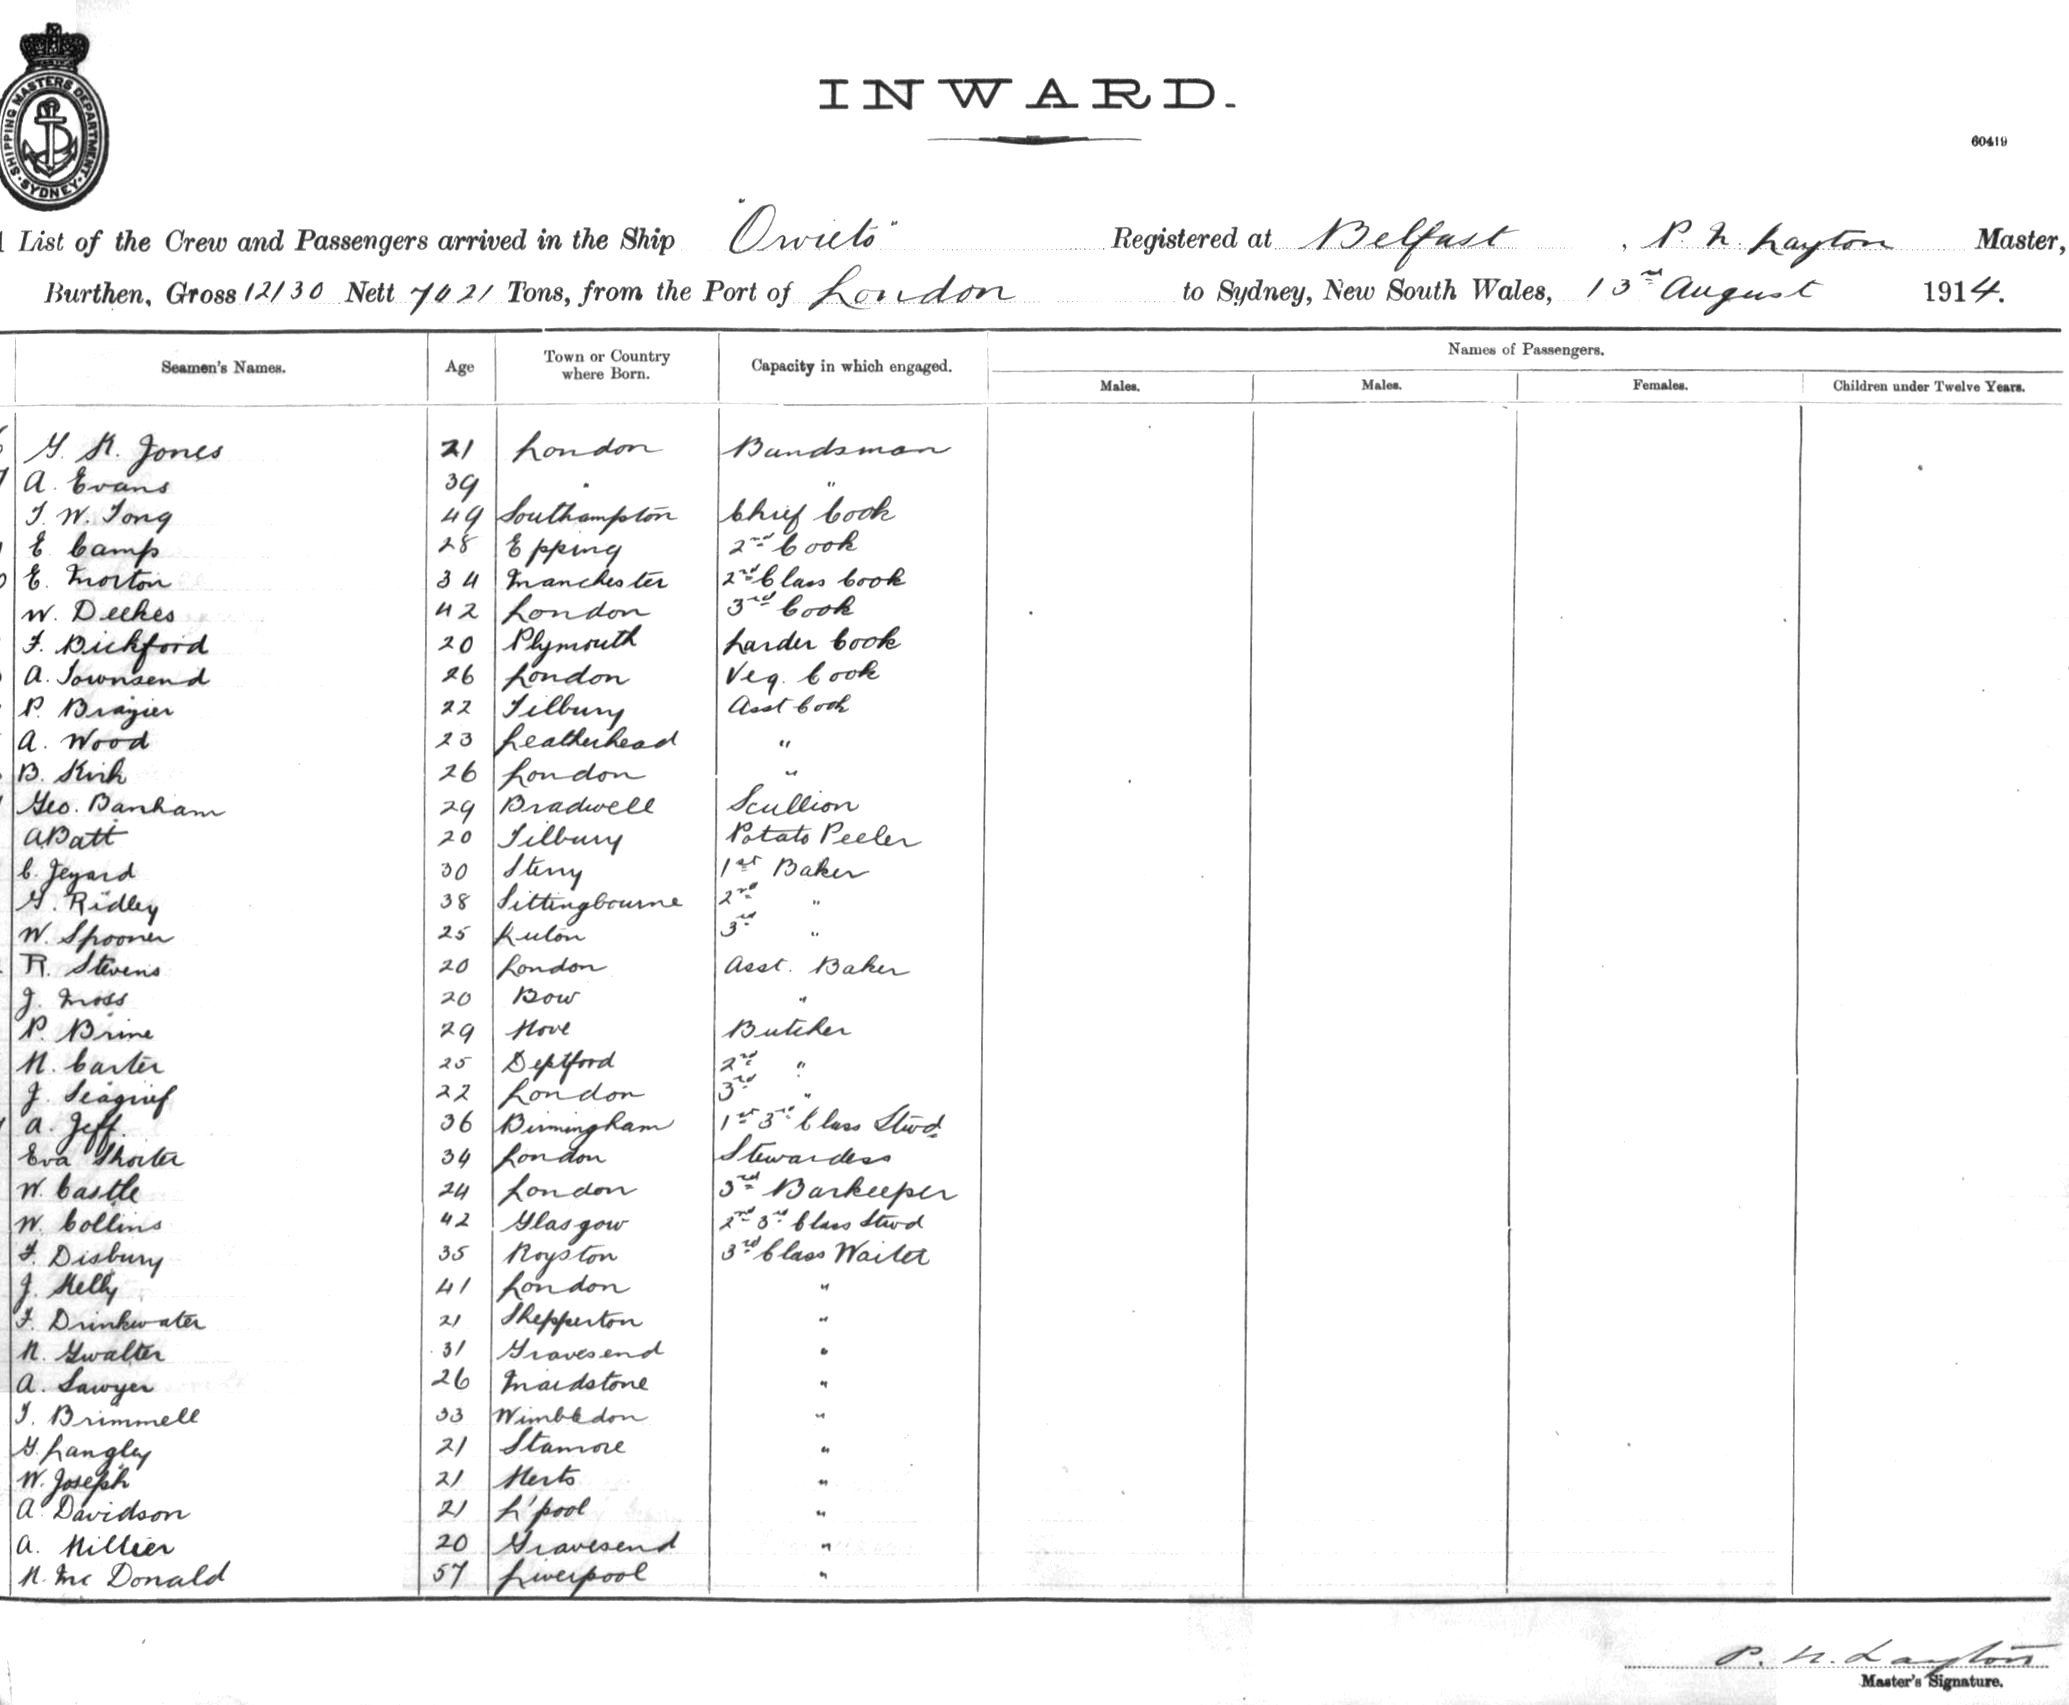 SHIPPING MASTERS DEPARTMENT · SYDNEY ·
INWARD.
60419
List of the Crew and Passengers arrived in the Ship "Orvieto" Registered at Belfast, P. N. Layton Master,
Burthen, Gross 12130 Nett 7421 Tons, from the Port of London to Sydney, New South Wales, 13th August 1914.
Seamen's Names. Age Town or Country where Born. Capacity in which engaged. Names of Passengers.
Males. Males. Females. Children under Twelve Years.
G. H. Jones 21 London Bandsman
A. Evans 39 " "
T. W. Tong 49 Southampton Chief Cook
E Camp 28 Epping 2nd Cook
E. Morton 34 Manchester 2nd Class Cook
W. Deekes 42 London 3rd Cook
F. Bickford 20 Plymouth Larder Cook
A. Townsend 26 London Veg. Cook
P. Brazier 22 Tilbury Asst Cook
A. Wood 23 Leatherhead "
B. Kirk 26 London "
Geo. Banham 29 Bradwell Scullion
A Batt 20 Tilbury Potato Peeler
C. Jeyard 30 1st Baker
G. Ridley 38 Sittingbourne 2nd "
W. Spooner 25 Luton 3rd "
R. Stevens 20 London Asst. Baker
J. Moss 20 Bow "
P. Brime 29 Hove Butcher
H. Carter 25 Deptford 2nd "
J. Seagrief 22 London 3rd "
A. Jeff. 36 Birmingham 1st 3rd Class Stwd
Eva Shorter 34 London Stewardess
W. Castle 24 London 3rd Barkeeper
W. Collins 42 Glasgow 2nd 3rd Class Stwd
F. Disbury 35 Royston 3rd Class Waiter
J. Kelly 41 London "
F. Drinkwater 21 Shepperton "
H. Gwalter 31 Gravesend "
A. Sawyer 26 Maidstone "
T. Brimmell 33 Wimbledon "
G. Langley 21 Stamore "
W. Joseph 21 Herts "
A. Davidson 21 L'pool "
A. Hillier 20 Gravesend "
H. Mc Donald 57 Liverpool "
P. N. Layton
Master's Signature.